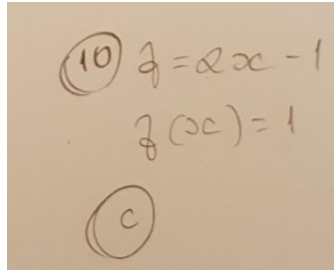 10 z = 2x - 1
z(x) = 1
C